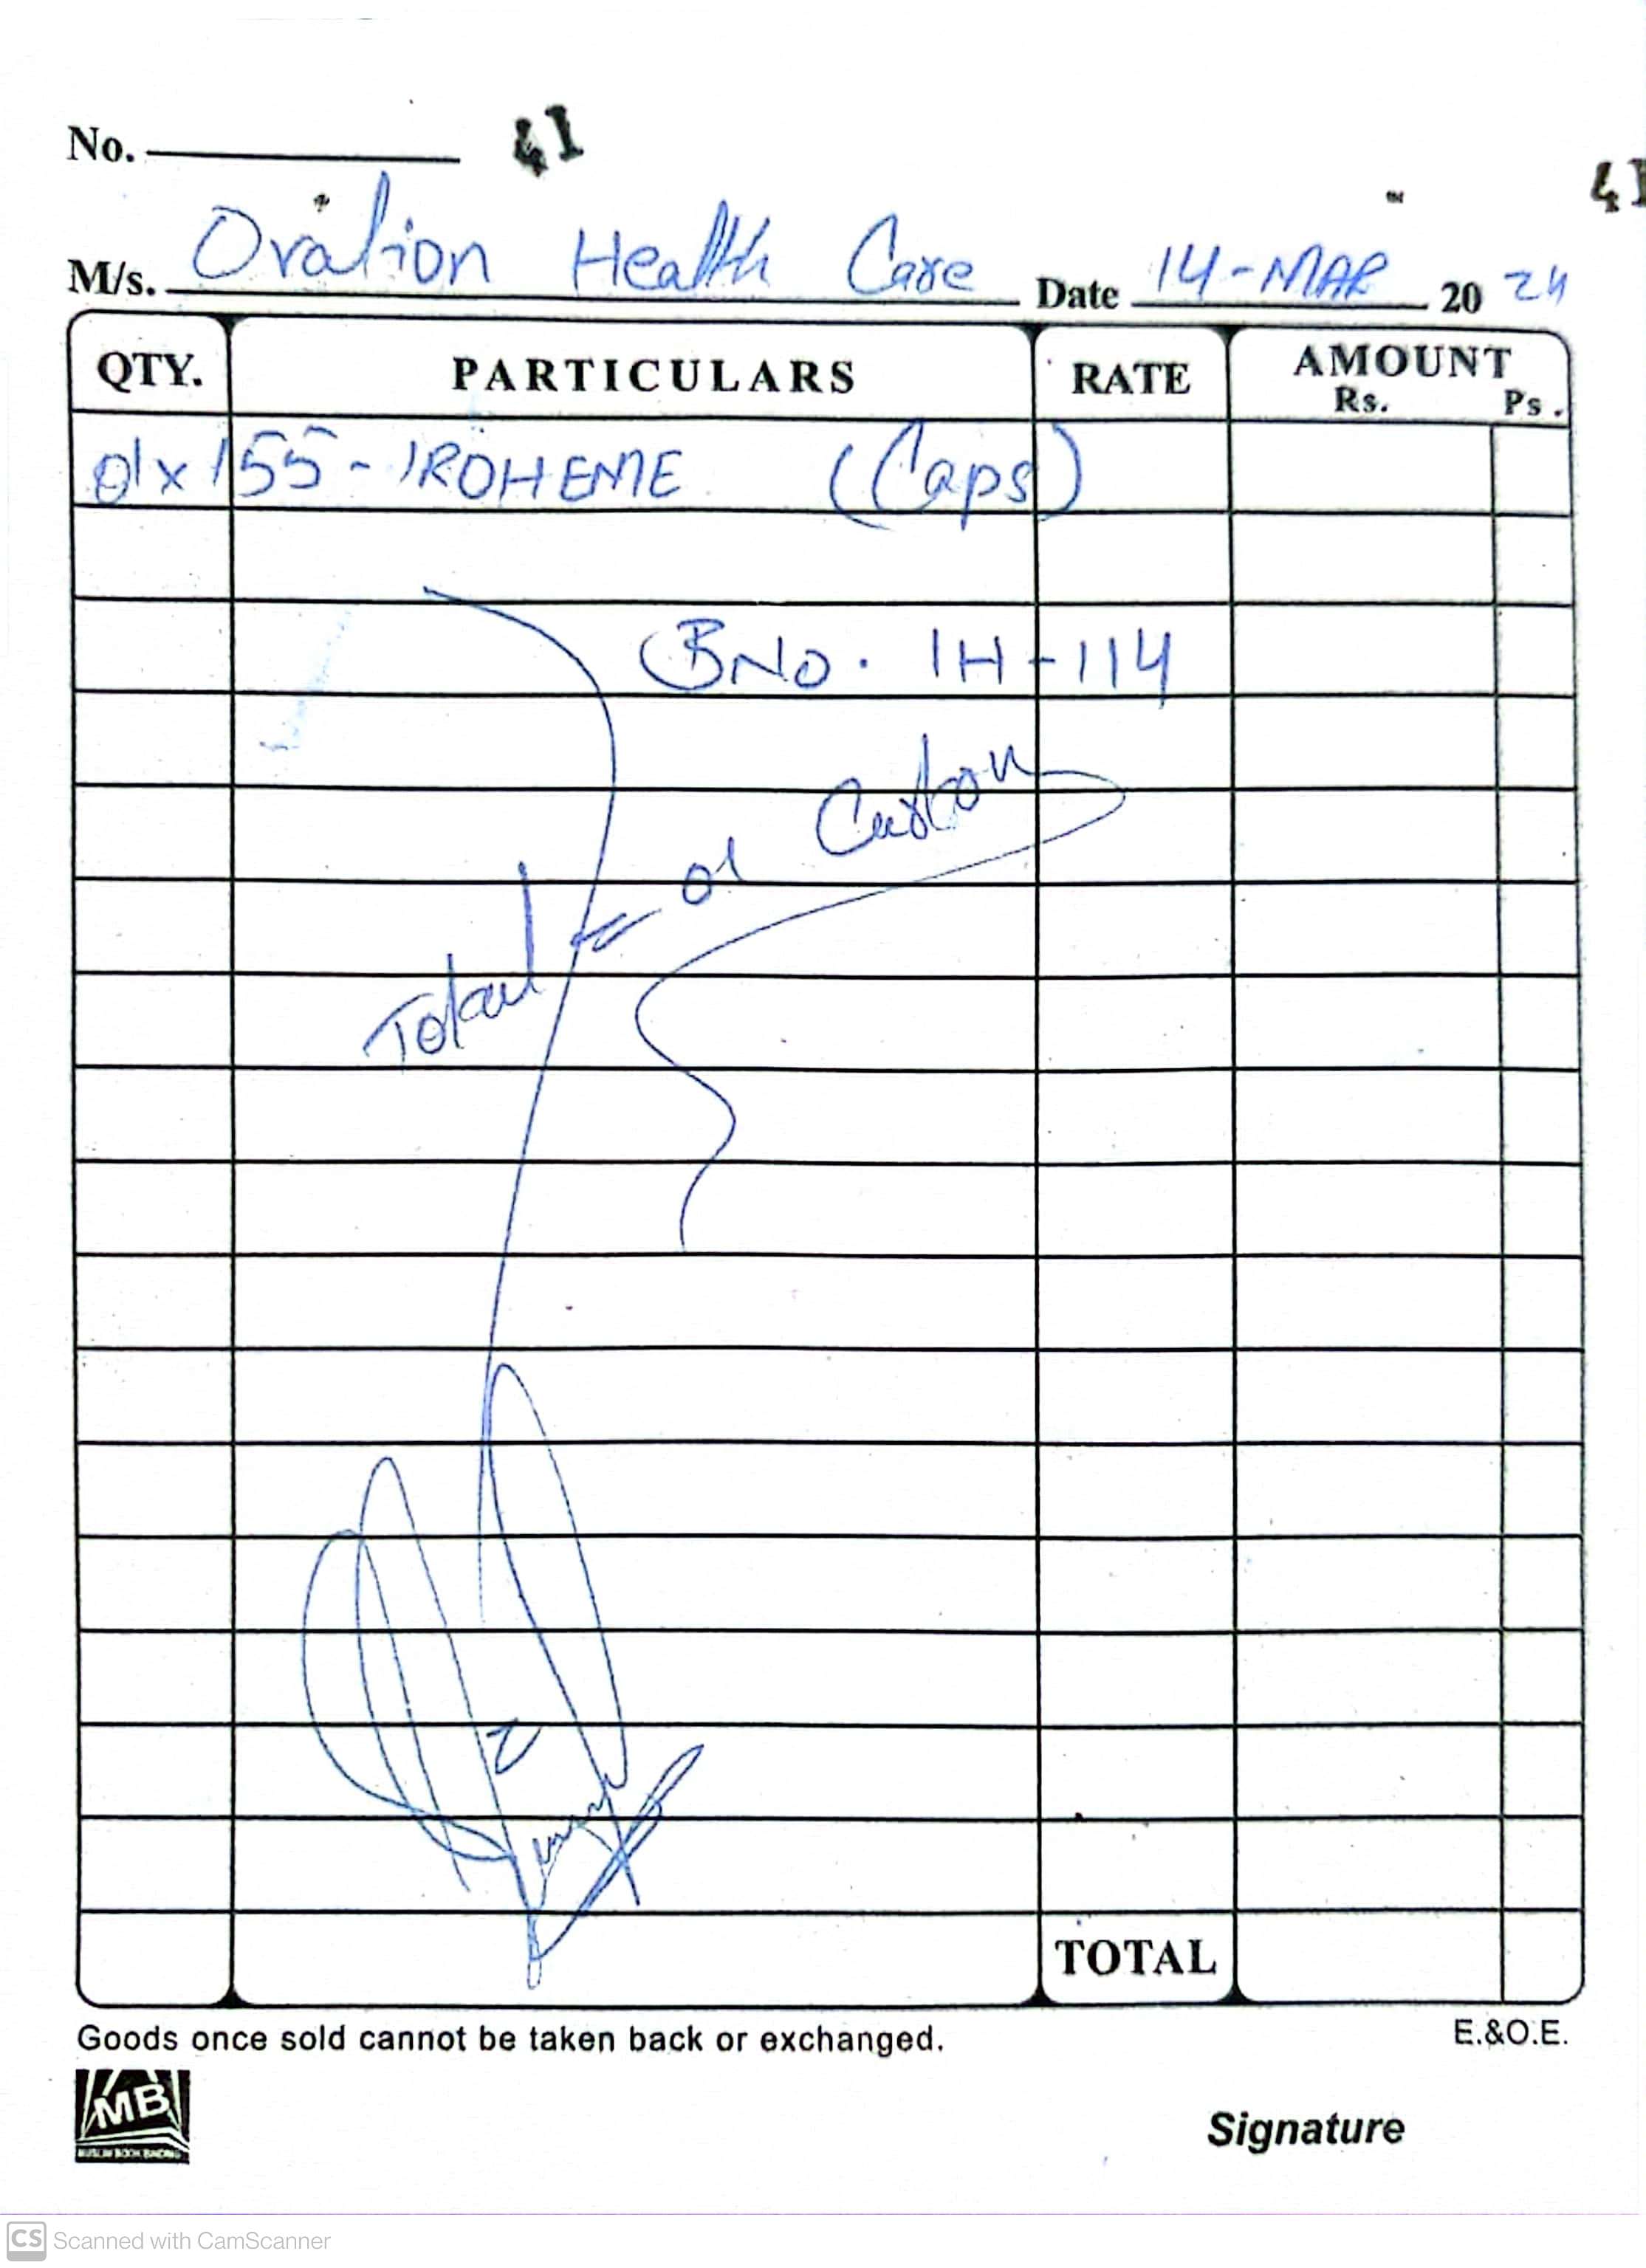 No. 41
41
M/s. Ovation Health Care Date 14-MAR 2024
QTY. PARTICULARS RATE AMOUNT
Rs. Ps.
01x155-IROHEME (Caps)
BNO. IH-114
Total = 01 Carton
TOTAL
Goods once sold cannot be taken back or exchanged. E.&O.E.
MB
MUSLIM BOOK BINDING
Signature
CS Scanned with CamScanner